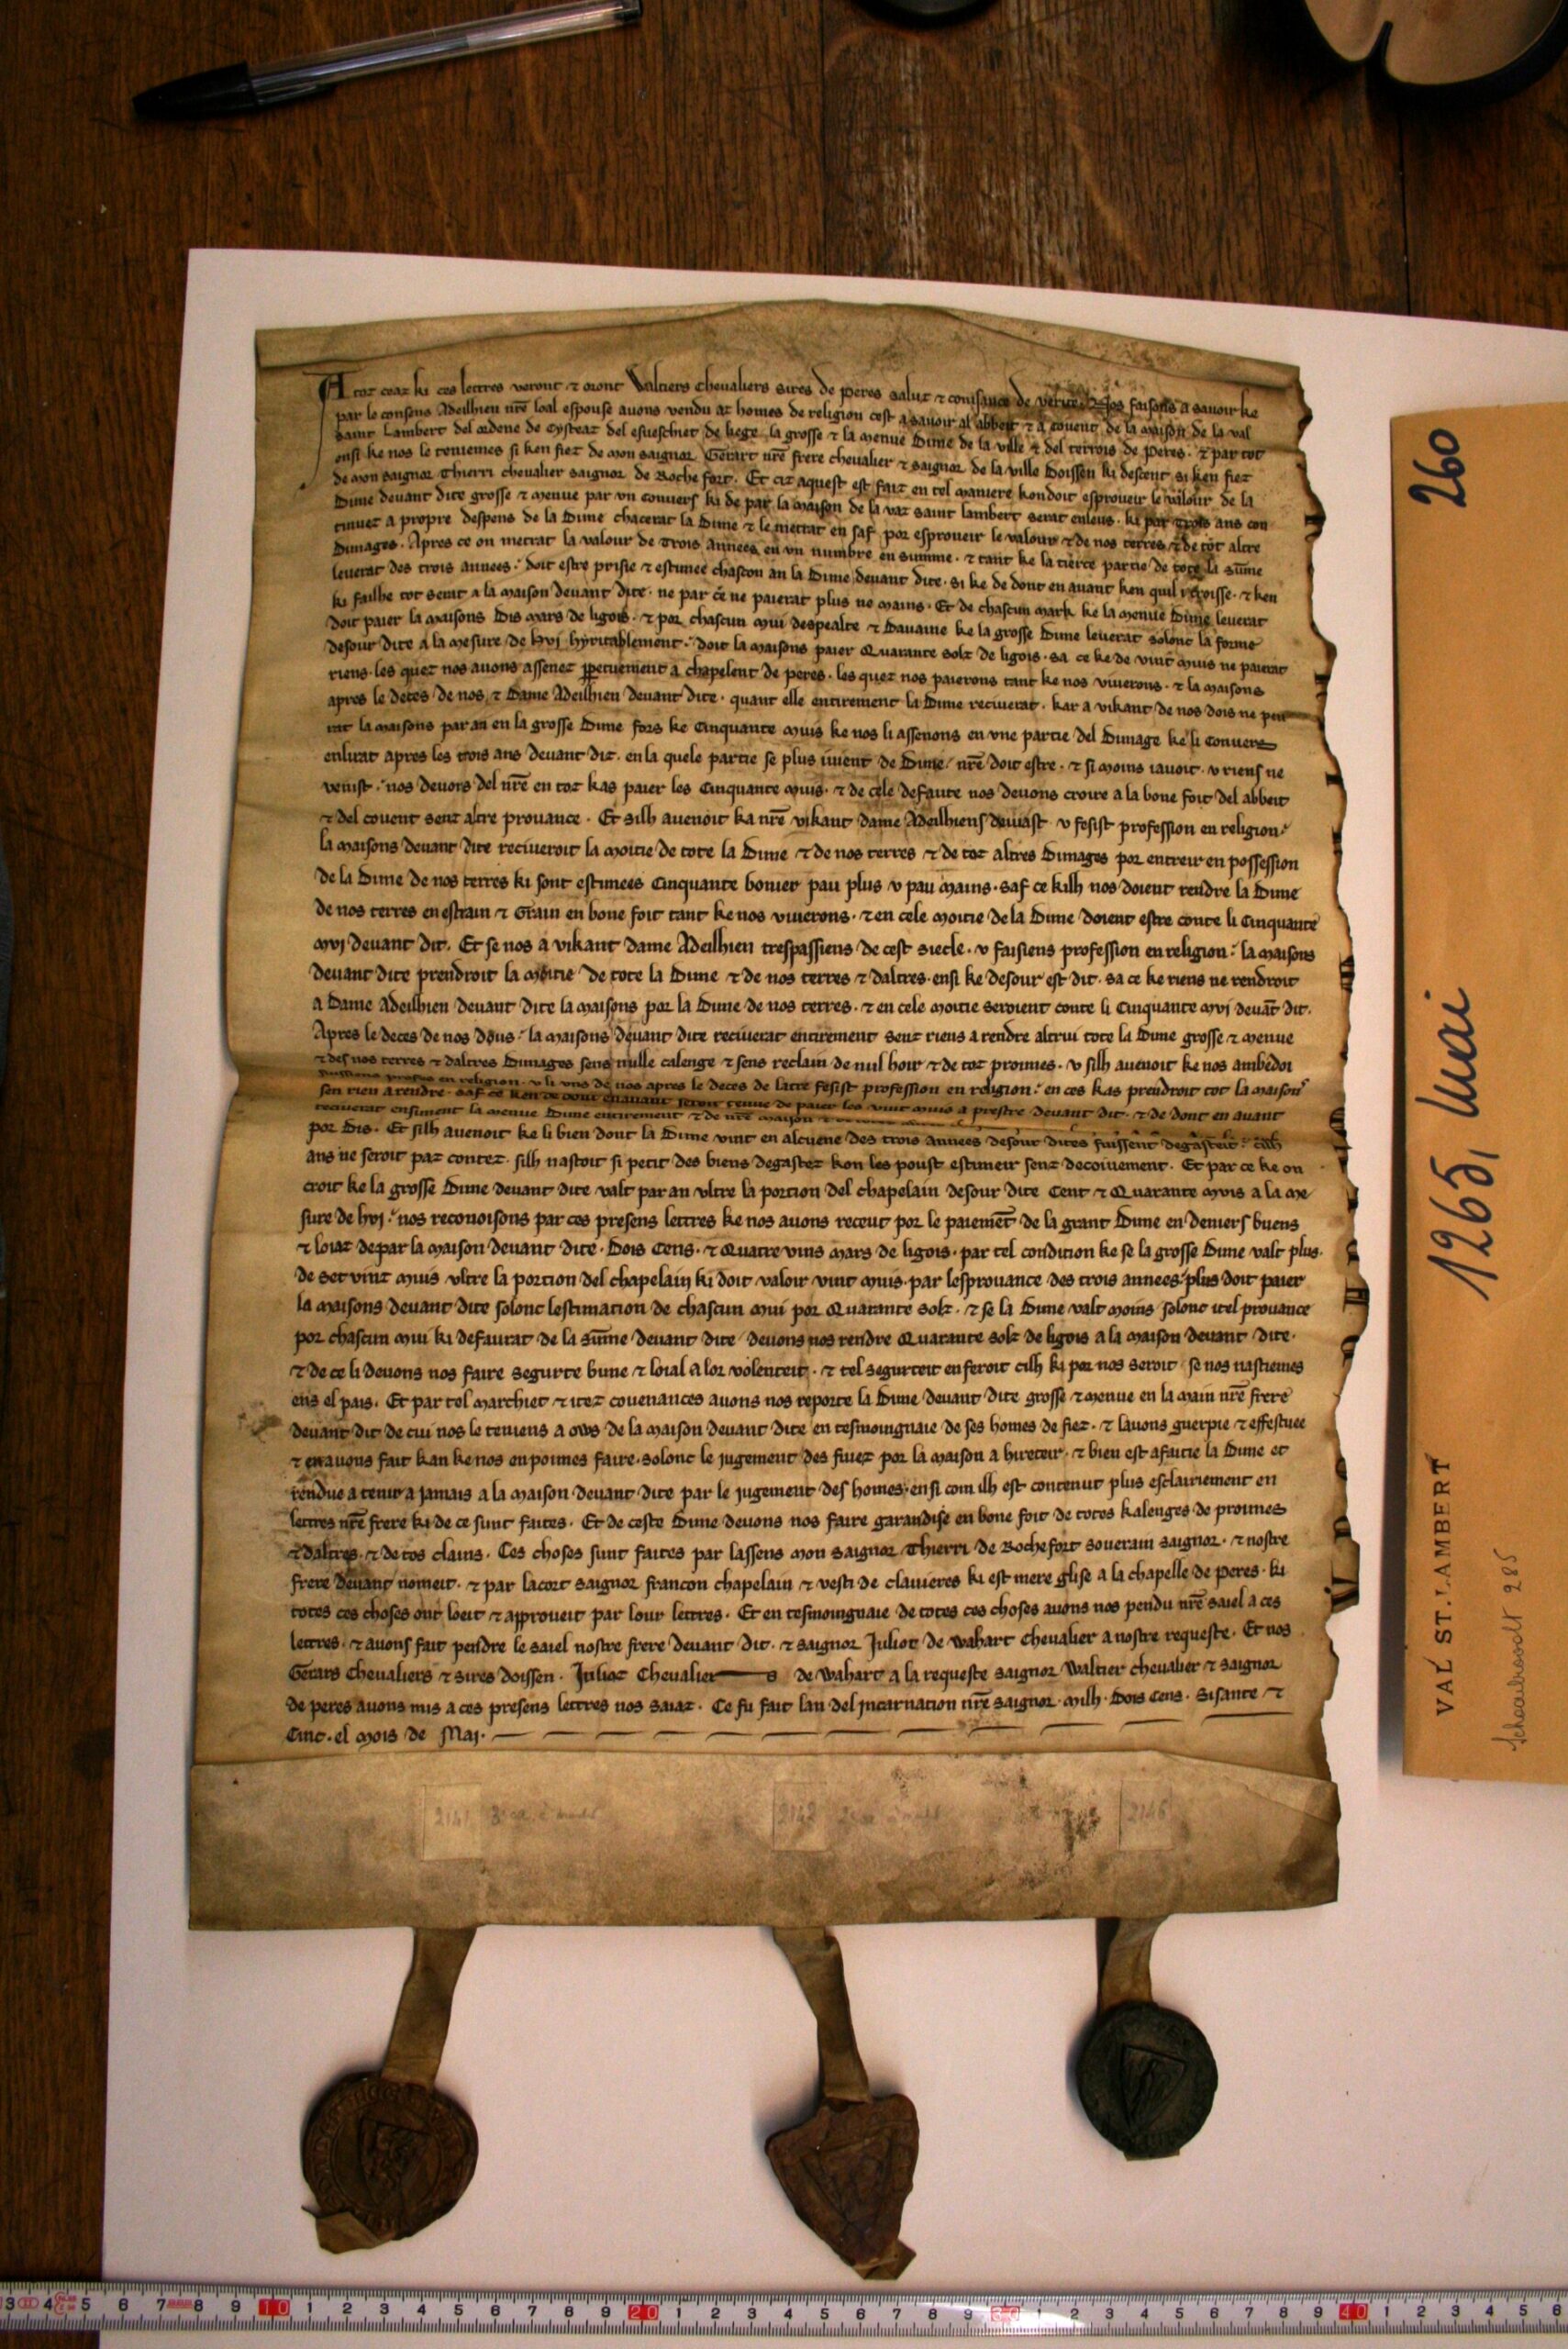 A toz ceaz ki ces lettres veront ⁊ oront Waltiers chevaliers sires de Peres salut ⁊ conissance de veriteit. Nos faisons a savoir ke
par le consens Adeilhien nr̄e loal espouse avons vendu az homes de religion cest a savoir al abbeit ⁊ a covent de la maison de la val
saint Lambert del ordene de Cysteaz del esveschiet de Lege la grosse ⁊ la menue dime de la ville ⁊ del terroir de Peres. ⁊ par tot
ensi ke nos le teniemes si ken fiez de mon saignor Gerart nr̄e frere chevalier ⁊ saignor de la ville Doissen ki descent si ken fiez
de mon saignor Thierri chevalier saignor de Rochefort. Et ciz aquest est faiz en tel maniere kon doit esproveir le valour de la
dime devant dite grosse ⁊ menue par un convers ki de par la maison de la vaz saint Lambert serat enleus. ki par trois ans con
tinuez a propre despens de la dime chacerat la dime ⁊ le metrat en saf por esproveir le valour ⁊ de nos terres ⁊ de tot altre
dimages. Apres ce on metrat la valour de trois annees en un numbre en summe. ⁊ tant ke la tierce partie de tote la sūme
leverat des trois annees. doit estre prisie ⁊ estimee chascon an la dime devant dite. si ke de dont en avant ken quil ⁊ ken
ki failhe tot serat a la maison devant dite. ne par ce ne paierat plus ne mains. Et de chascun mark ke la menue dime leverat
doit paier la maisons dis mars de ligois. ⁊ por chascun mui despealte ⁊ davaine ke la grosse dime leverat solonc la forme
desour dite a la mesure de Hvj hyritablement. doit la maisons paier Quarante solz de ligois. sa ce ke de vint muis ne paierat
riens. les quez nos avons assenez ꝑpetuement a chapelent de Peres. les quez nos paierons tant ke nos viverons. ⁊ la maisons
apres le deces de nos ⁊ dame Adeilhien devant dite. quant elle entirement la dime reciverat. kar a vikant de nos dois ne pen
rat la maisons par an en la grosse dime fors ke Cinquante muis ke nos li assenons en une partie del dimage ke li convers
enlirat apres les trois ans devant dit. en la quele partie se plus iuient de dime nr̄e doit estre. ⁊ si moins iavoit. v riens ne
venist. nos devons del nr̄e en toz kas paier les Cinquante muis. ⁊ de cele defaute nos devons croire a la bone foit del abbeit
⁊ del covent senz altre provance. Et silh avenoit ka nr̄e vikant dame Adeilhiens deviast v fesist profession en religion.
la maisons devant dite reciveroit la moitie de tote la dime ⁊ de nos terres ⁊ de toz altres dimages por entreir en possession
de la dime de nos terres ki sont estimees Cinquante bonier pau plus v pau mains. saf ce kilh nos doient rendre la dime
de nos terres en estrain ⁊ Grain en bone foit tant ke nos viverons. ⁊ en cele moitie de la dime doient estre conte li Cinquante
mvj devant dit. Et se nos a vikant dame Adeilhien trespassiens de cest siecle. v faisiens profession en religion. la maisons
devant dite prendroit la moitie de tote la dime ⁊ de nos terres ⁊ daltres. ensi ke desour est dit. sa ce ke riens ne rendroit
a dame Adeilhien devant dite la maisons por la dime de nos terres. ⁊ en cele moitie seroient conte li Cinquante mvj devāt dit.
Apres le deces de nos dous. la maisons devant dite reciverat entirement senz riens a rendre altrui tote la dime grosse ⁊ menue
⁊ des nos terres ⁊ daltres dimages sens nulle calenge ⁊ sens reclain de nul hoir ⁊ de toz proimes. v silh avenoit ke nos ambedoi
en religion. v li uns de nos apres le deces de latre fesist profession en religion. en ces kas prendroit tot la maison
sen rien a rendre. saf ce ken de dont en avant seroit tenue de paier les vint muis a prestre devant dit. ⁊ de dont en avant
reciverat ensiment la menue dime entirement ⁊ de nr̄e maison
por dis. Et silh avenoit ke li bien dont la dime vint en alcuene des trois annees desour dites fuissent degasteit. cilh
ans ne seroit paz contez. silh nastoit si petit des biens degastez kon les poust estimeir senz decoivement. Et par ce ke on
croit ke la grosse dime devant dite valt par an ultre la portion del chapelain desour dite Cent ⁊ Quarante mvis a la me
sure de hvj. nos reconoisons par ces presens lettres ke nos avons receut por le paiemēt de la grant dime en deniers buens
⁊ loiaz de par la maison devant dite. Dois Cens. ⁊ Quatre vins mars de ligois. par tel condition ke se la grosse dime valt plus.
de set vinz muis ultre la portion del chapelain ki doit valoir vint muis. par lesprovance des trois annees. plus doit paier
la maisons devant dite solonc lestimation de chascun mui por Quarante solz. ⁊ se la dime valt moins solonc itel provance
por chascun mui ki defaurat de la sūme devant dite devons nos rendre Quarante solz de ligois a la maison devant dite.
⁊ de ce li devons nos faire segurte bune ⁊ loial a lor volenteit. ⁊ tel segurteit en feroit cilh ki por nos seroit se nos nastiemes
ens el pais. Et par tel marchiet ⁊ itez covenances avons nos reporte la dime devant dite grosse ⁊ menue en la main nr̄e frere
devant dit de cui nos le teniens a ows de la maison devant dite en tesmoingnaie de ses homes de fiez. ⁊ lavons guerpie ⁊ effestuee
⁊ en avons fait kan ke nos en poimes faire. solonc le jugement des fivez por la maison a hireteir. ⁊ bien est afaitie la dime et
rendue a tenir a jamais a la maison devant dite par le jugement des homes. ensi com ilh est contenut plus esclairiement en
lettres nr̄e frere ki de ce sunt faites. Et de ceste dime devons nos faire garandise en bone foit de totes kalenges de proimes
⁊ daltres. ⁊ de tos clains. Ces choses sunt faites par lassens mon saignor Thierri de Rochefort soverain saignor. ⁊ nostre
frere devant nomeit. ⁊ par lacort saignor francon chapelain ⁊ vesti de clavieres ki est mere glise a la chapelle de Peres. ki
totes ces choses ont loeit ⁊ approveit par lour lettres. Et en tesmoingnaie de totes ces choses avons nos pendu nr̄e saiel a ces
lettres. ⁊ avons fait pendre le saiel nostre frere devant dit. ⁊ saignor Juliot de Wahart chevalier a nostre requeste. Et nos
Gerars Chevaliers ⁊ sires doissen. Julioz Chevalier——s de Wahart a la requeste saignor Waltier chevalier ⁊ saignor
de Peres avons mis a ces presens lettres nos saiaz. Ce fu fait lan del Incarnation nr̄e saignor. milh. Dois Cens. Sisante ⁊
Cinc. el mois de Maj.
2141
2142
2143
260
1265, Mai
VAL ST. LAMBERT
Schoonbroodt 285